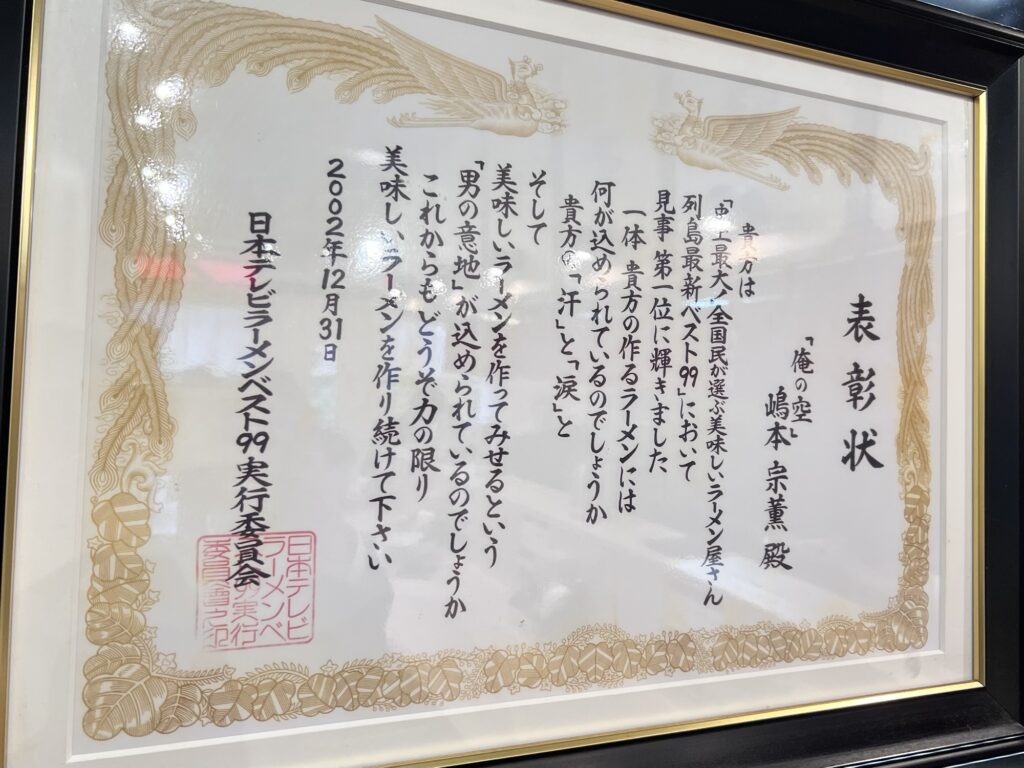 表彰状
「俺の空」
嶋本 宗薫 殿
貴方は
「史上最大!全国民が選ぶ美味しいラーメン屋さん
列島最新ベスト99」において
見事 第一位に輝きました
一体 貴方の作るラーメンには
何が込められているのでしょうか
貴方の「汗」と「涙」と
そして
美味しいラーメンを作ってみせるという
「男の意地」が込められているのでしょうか
これからもどうぞ力の限り
美味しいラーメンを作り続けて下さい
2002年12月31日
日本テレビラーメンベスト99実行委員会
日本テレビ
ラーメンベ
の実行
委員会之印